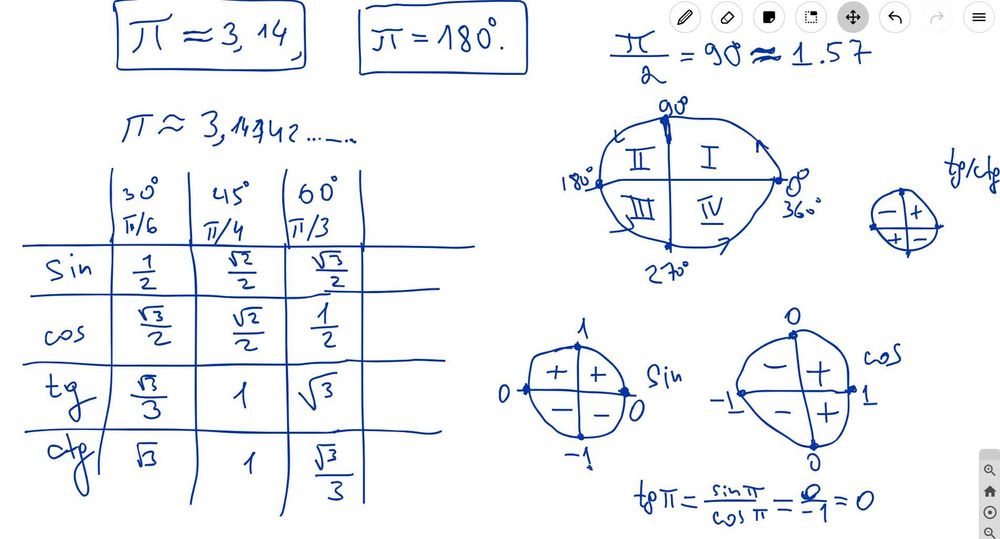 π ≈ 3,14,
π = 180°.
π/2 = 90° ≈ 1.57
π ≈ 3,14742......
30° 45° 60°
π/6 π/4 π/3
sin 1/2 √2/2 √3/2
cos √3/2 √2/2 1/2
tg √3/3 1 √3
ctg √3 1 √3/3
90°
II I
180° 0°
360°
III IV
270°
tg/ctg
- +
+ -
1
+ + sin
0 0
- -
-1
0
- + cos
-1 1
- +
0
tg π = sin π/cos π = 0/-1 = 0